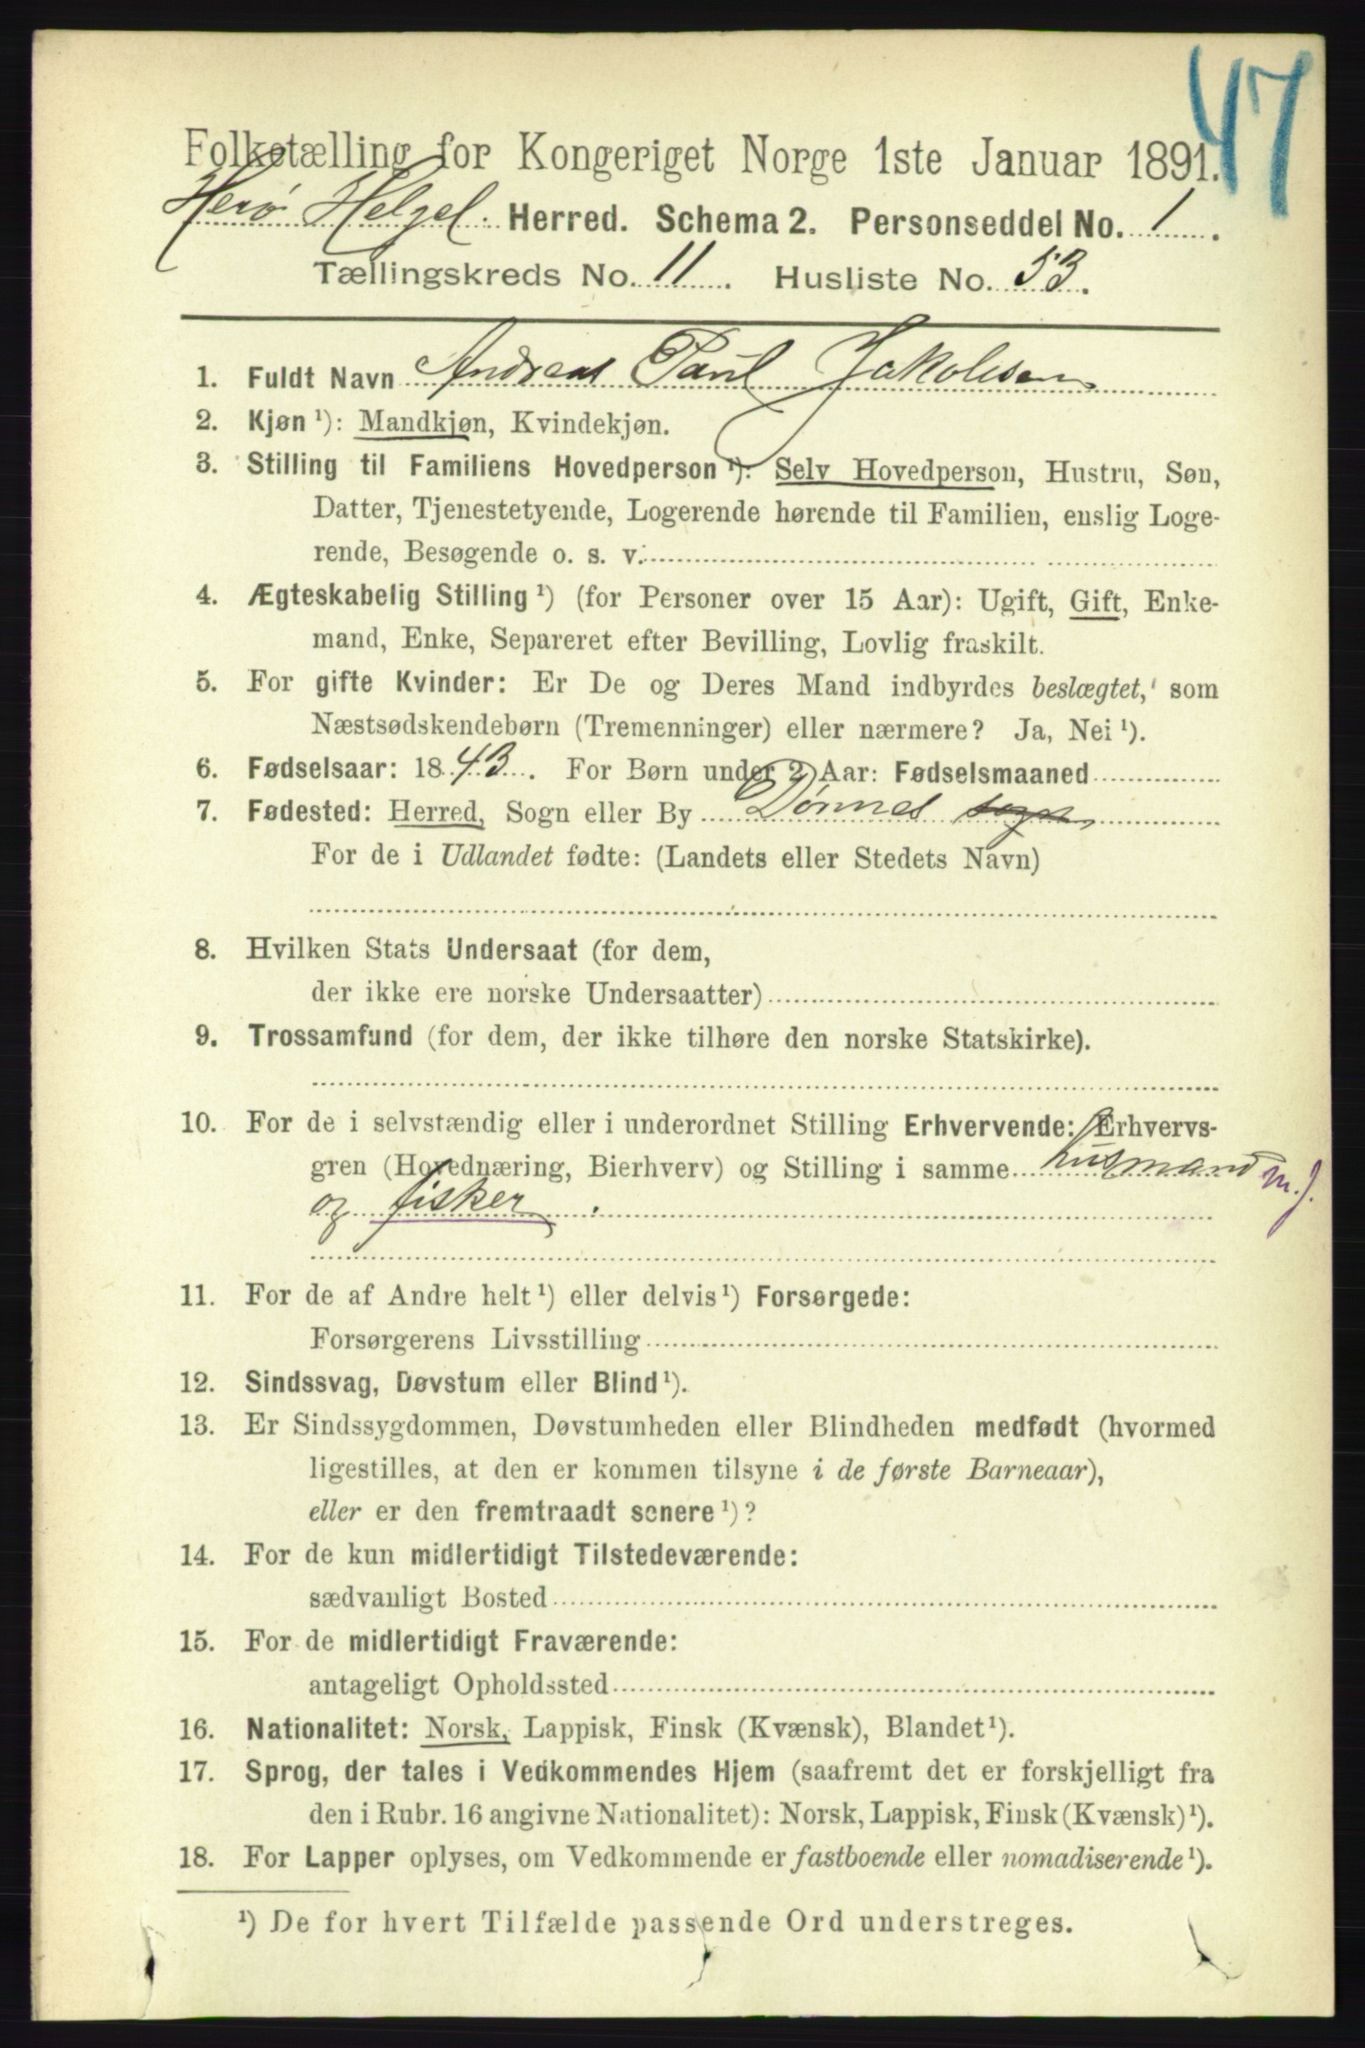 47
Folketælling for Kongeriget Norge 1ste Januar 1891.
Herø Helgel. Herred. Schema 2. Personseddel No. 1.
Tællingskreds No. 11. Husliste No. 53.
1. Fuldt Navn Andreas Paul Jakobsen
2. Kjøn ¹): Mandkjøn, Kvindekjøn.
3. Stilling til Familiens Hovedperson ¹): Selv Hovedperson, Hustru, Søn,
Datter, Tjenestetyende, Logerende hørende til Familien, enslig Loge-
rende, Besøgende o. s. v.
4. Ægteskabelig Stilling ¹) (for Personer over 15 Aar): Ugift, Gift, Enke-
mand, Enke, Separeret efter Bevilling, Lovlig fraskilt.
5. For gifte Kvinder: Er De og Deres Mand indbyrdes beslægtet, som
Næstsødskendebørn (Tremenninger) eller nærmere? Ja, Nei ¹).
6. Fødselsaar: 1843. For Børn under 2 Aar: Fødselsmaaned
7. Fødested: Herred, Sogn eller By Dønnes sogn
For de i Udlandet fødte: (Landets eller Stedets Navn)
8. Hvilken Stats Undersaat (for dem,
der ikke ere norske Undersaatter)
9. Trossamfund (for dem, der ikke tilhøre den norske Statskirke).
10. For de i selvstændig eller i underordnet Stilling Erhvervende: Erhvervs-
gren (Hovednæring, Bierhverv) og Stilling i samme husmand m.j.
og fisker.
11. For de af Andre helt ¹) eller delvis ¹) Forsørgede:
Forsørgerens Livsstilling
12. Sindssvag, Døvstum eller Blind ¹).
13. Er Sindssygdommen, Døvstumheden eller Blindheden medfødt (hvormed
ligestilles, at den er kommen tilsyne i de første Barneaar),
eller er den fremtraadt senere ¹)?
14. For de kun midlertidigt Tilstedeværende:
sædvanligt Bosted
15. For de midlertidigt Fraværende:
antageligt Opholdssted
16. Nationalitet: Norsk, Lappisk, Finsk (Kvænsk), Blandet ¹).
17. Sprog, der tales i Vedkommendes Hjem (saafremt det er forskjelligt fra
den i Rubr. 16 angivne Nationalitet): Norsk, Lappisk, Finsk (Kvænsk) ¹).
18. For Lapper oplyses, om Vedkommende er fastboende eller nomadiserende ¹).
¹) De for hvert Tilfælde passende Ord understreges.